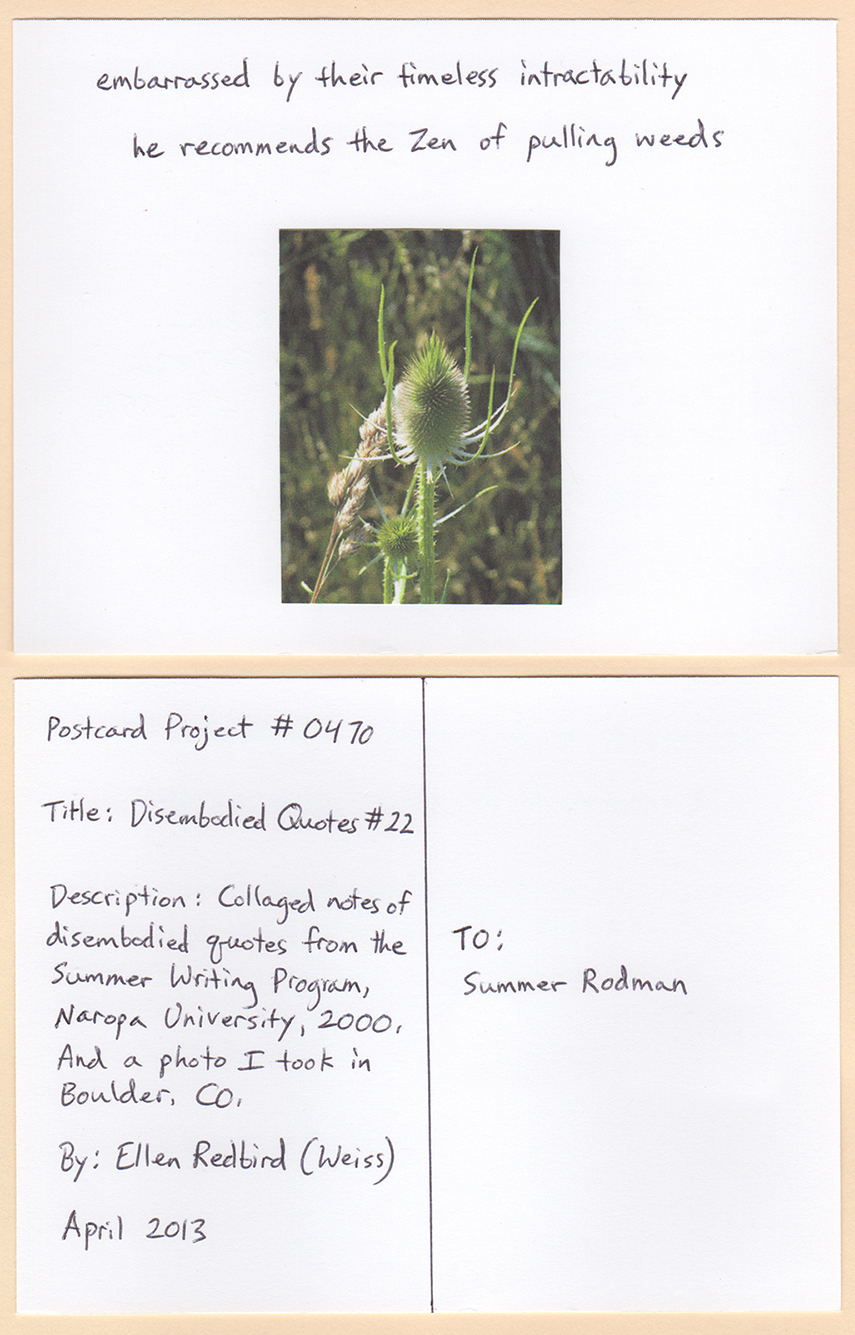 embarrassed by their timeless intractability
he recommends the Zen of pulling weeds
Postcard Project #0470
Title: Disembodied Quotes #22
Description: Collaged notes of
disembodied quotes from the
Summer Writing Program,
Naropa University, 2000.
And a photo I took in
Boulder, CO.
By: Ellen Redbird (Weiss)
April 2013
TO:
Summer Rodman